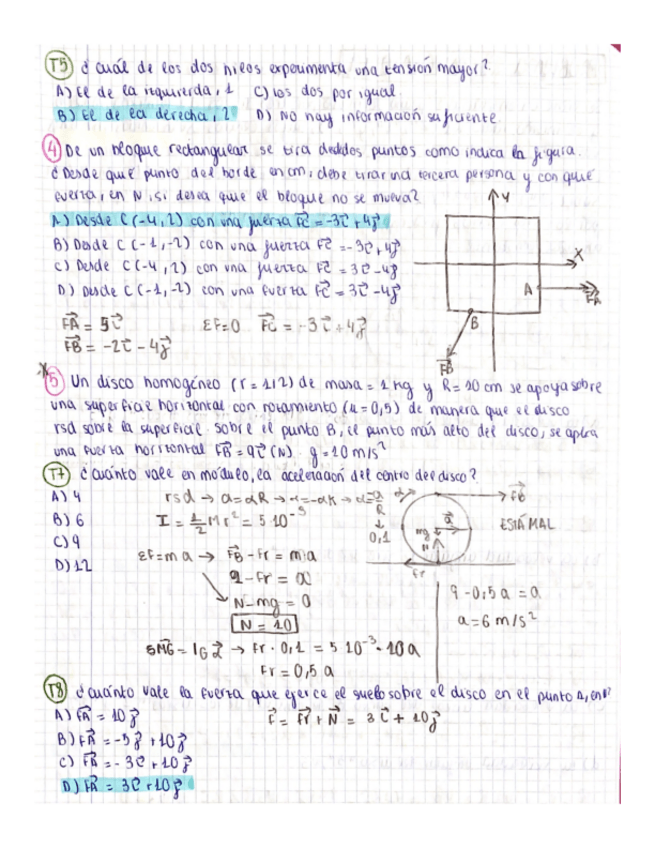 T5 ¿ cuál de los dos hilos experimenta una tensión mayor?
A) El de la izquierda, 1 C) los dos por igual
B) El de la derecha, 2 D) No hay información suficiente.
4) De un bloque rectangular se tira desde dos puntos como indica la figura.
¿Desde qué punto del borde en cm, debe tirar una tercera persona y con qué
fuerza, en N, si desea que el bloque no se mueva?
A) Desde C (-4, 2) con una fuerza FC = -3i + 4j
B) Desde C (-1, -2) con una fuerza FC = -3i, 4j
C) Desde C (-4, 2) con una fuerza FC = 3i - 4j
D) Desde C (-1, -2) con una fuerza FC = 3i - 4j
Y
X
A
FA
B
FB
FA = 5i ΣF=0 FC = -3i + 4j
FB = -2i - 4j
5) Un disco homogéneo (I = 1/2) de masa = 1 kg y R = 10 cm se apoya sobre
una superficie horizontal con rozamiento (μ = 0,5) de manera que el disco
rsd sobre la superficie. Sobre el punto B, el punto más alto del disco, se aplica
una fuerza horizontal FB = 9i (N). g = 10 m/s²
T7 ¿cuánto vale en módulo, la aceleración del centro del disco?
A) 4
B) 6
C) 9
D) 12
rsd → a = αR → a = -αR → α = a/R
↓
0,1
I = 1/2 M r² = 5 10⁻³
ΣF = m a → FB - Fr = m a
9 - Fr = a
N - mg = 0
N = 10
ΣMG = IG α → Fr · 0,1 = 5 10⁻³ · 10 a
Fr = 0,5 a
α
FB
a
mg
N
Fr
ESTÁ MAL
9 - 0,5 a = a
a = 6 m/s²
T8 ¿cuánto vale la fuerza que ejerce el suelo sobre el disco en el punto A, en N?
A) FA = 10j F = Fr + N = 3i + 10j
B) FA = -5j + 10j
C) FA = -3i + 10j
D) FA = 3i + 10j